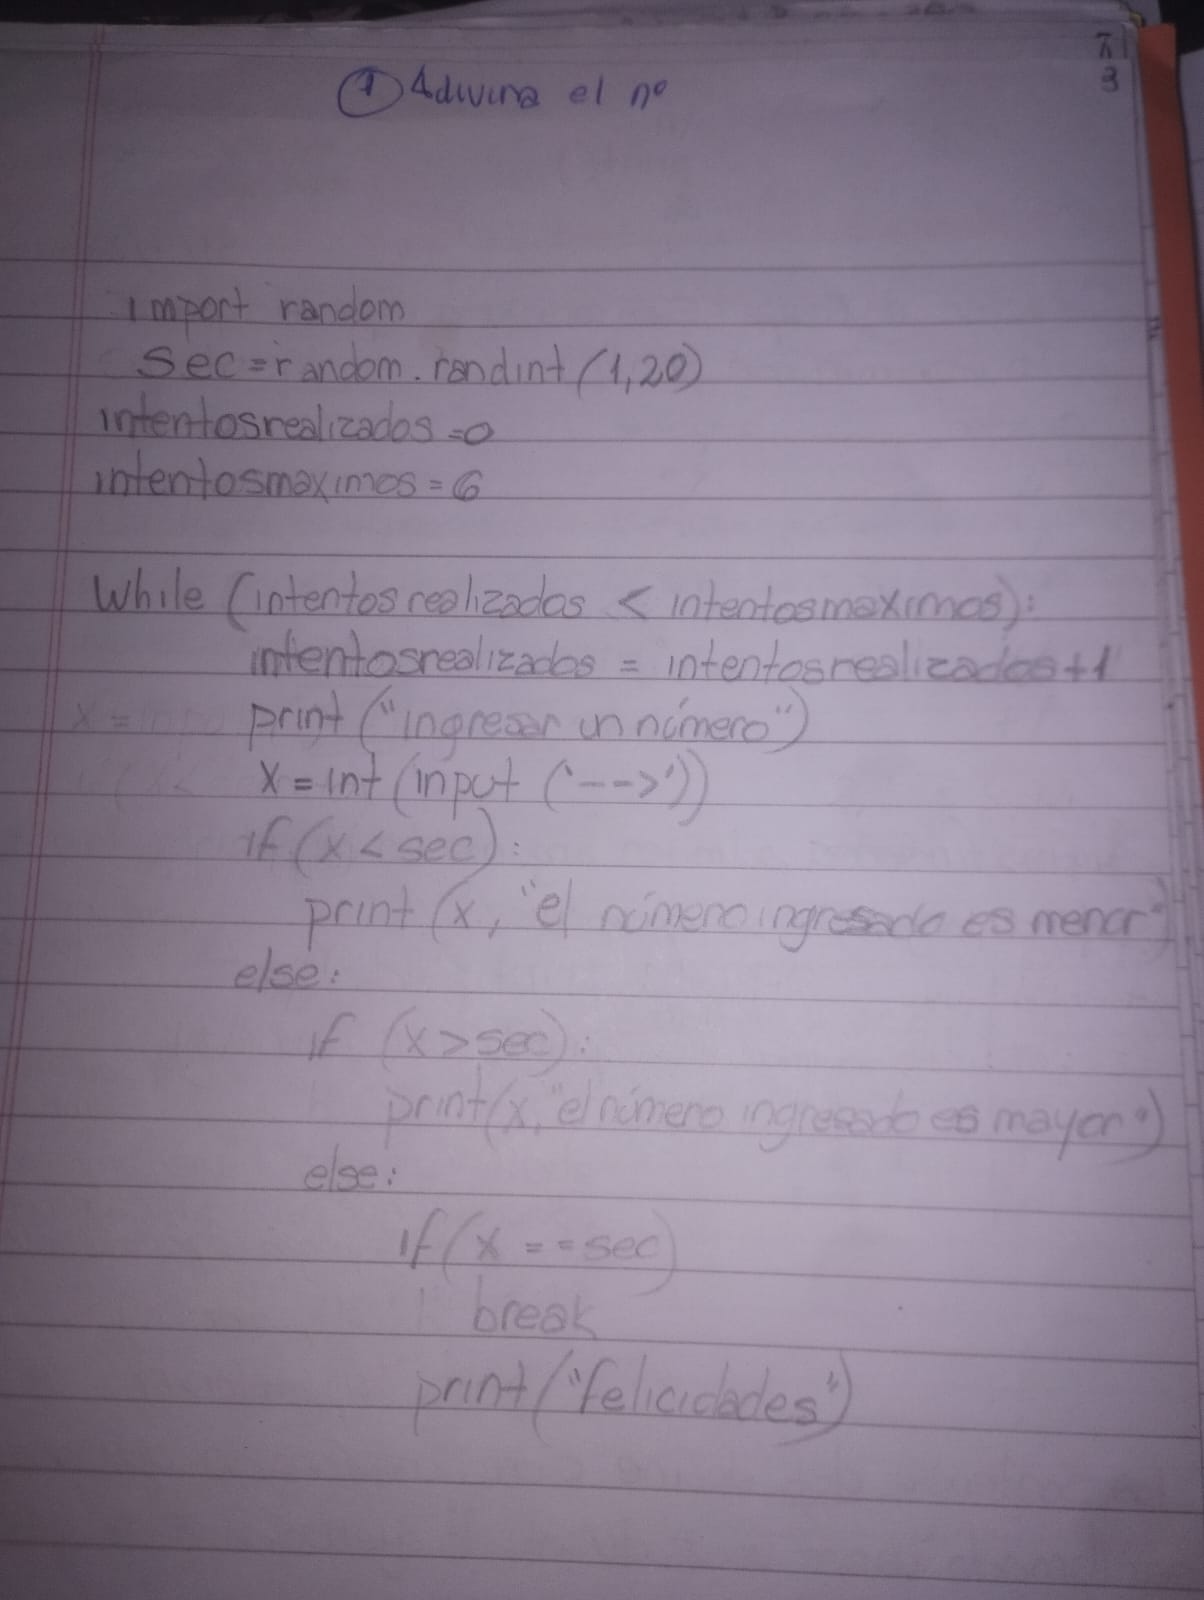 ① Adivina el nº
import random
Sec=random.randint(1,20)
intentosrealizados=0
intentosmaximos=6
While (intentosrealizados < intentosmaximos):
intentosrealizados = intentosrealizados+1
print ("ingresar un número")
X=int(input ('-->'))
if (x<sec):
print (x, "el número ingresado es menor")
else:
if (x>sec):
print(x,"el número ingresado es mayor")
else:
if(x==sec)
break
print("felicidades")